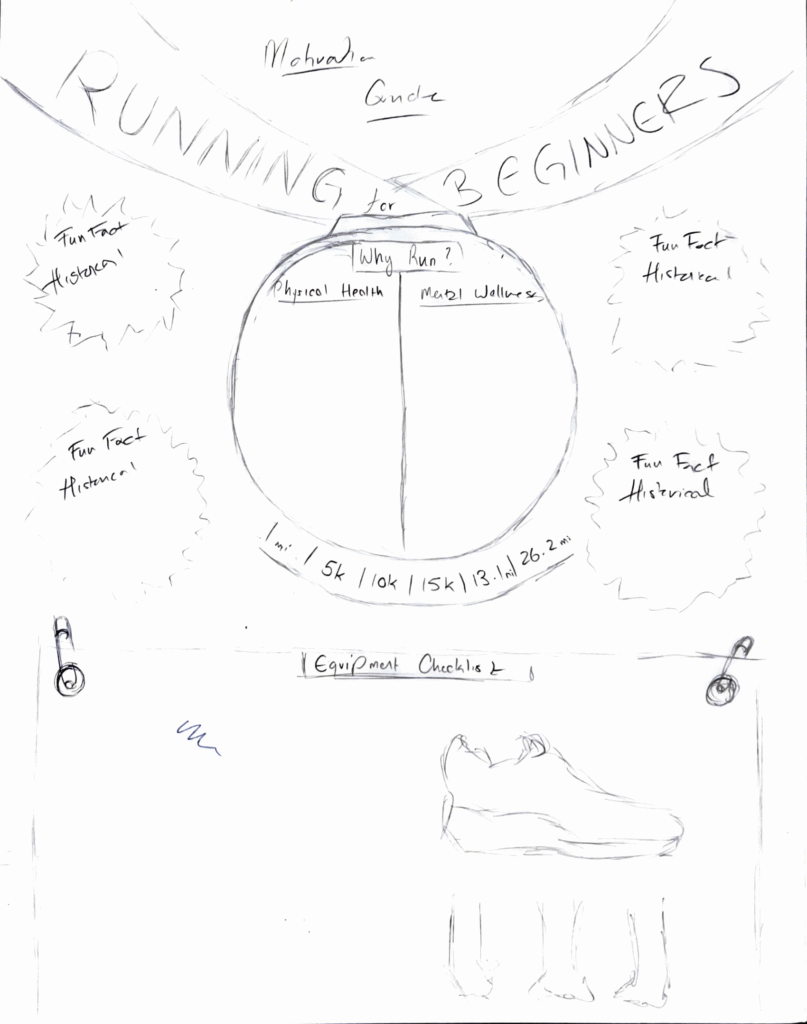 Motivation
Guide
RUNNING for BEGINNERS
Fun Fact
Historical
Fun Fact
Historical
Why Run?
Physical Health
Mental Wellness
Fun Fact
Historical
Fun Fact
Historical
1 mi. | 5k | 10k | 15k | 13.1 mi | 26.2 mi
Equipment Checklist